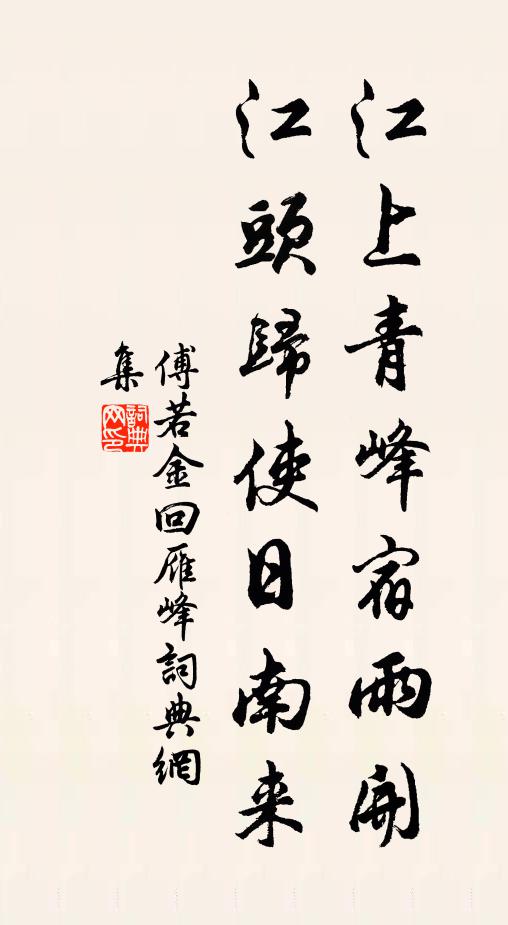 江上青峰宿雨開
江頭歸使日南来
傅若金回雁峰詞典網
集
詞典
网印